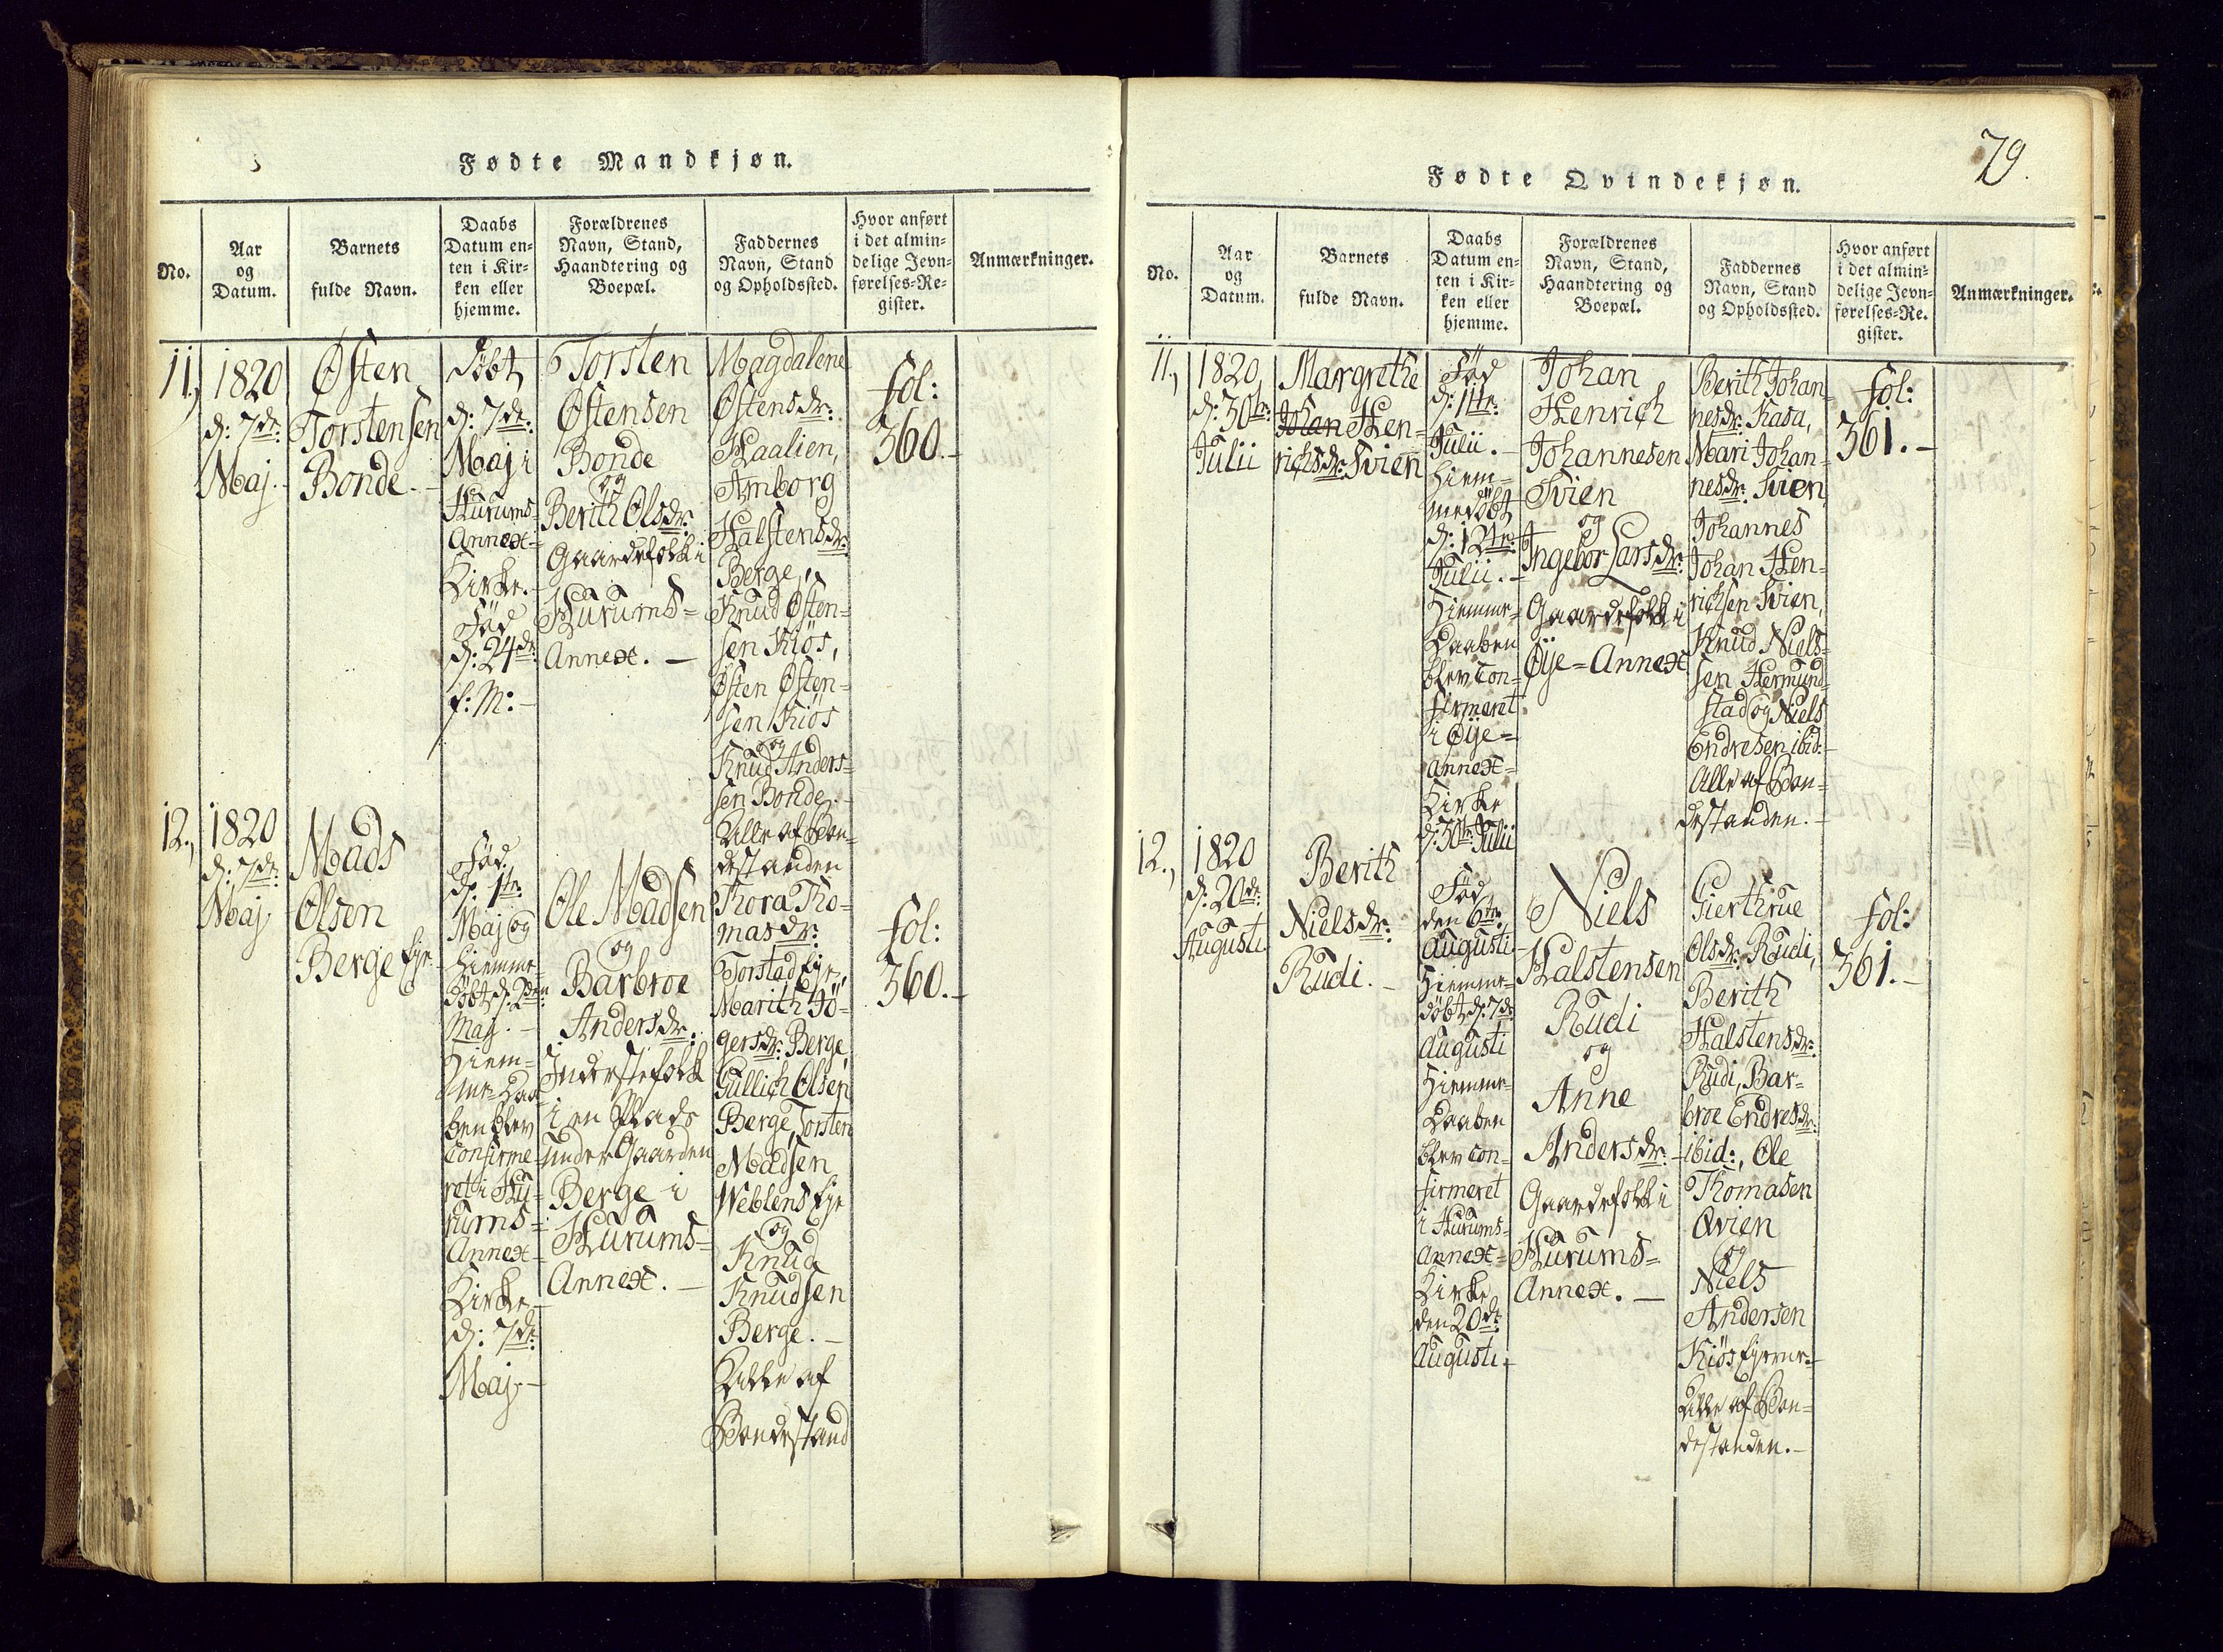 Fødte Mandkjøn.
No.
Aar
og
Datum.
Barnets
fulde Navn.
Daabs
Datum en-
ten i Kir-
ken eller
hjemme.
Forældrenes
Navn, Stand,
Haandtering og
Boepæl.
Faddernes
Navn, Stand
og Opholdssted.
Hvor anført
i det almin-
delige Jevn-
førelses-Re-
gister.
Anmærkninger.
11.,
1820
d: 7de
Maj.-
Østen
Torstensen
Bonde.-
døbt
d: 7de
Maj i
Hurums-
Annex-
Kirke.-
Fød
d: 24de
f: M:-
Torsten
Østensen
Bonde
og
Berith Olsdr:
Gaardefolk i
Hurums-
Annex. -
Magdalene
Østensdr:
Haalien,
Amborg
Halstensdr:
Berge,
Knud Østen-
sen Kiøs,
Østen Østen-
sen Kiøs
og
Knud Anders-
sen Bonde.-
Alle af Bon-
destanden
fol:
360.-
12.,
1820
d: 7de
Maj
Mads
Olsen
Berge Eje
Fød
d: 1te
Maj og
hiemme-
døbt d: 2den
Maj.-
Hiem-
me-Daa-
ben blev
confirme-
ret i Hu-
rums-
Annex-
Kirke-
d: 7de
Maj-
Ole Madsen
og
Barbroe
Andersdr:
Inderstefolk
i en Plads
under Gaarden
Berge i
Hurums-
Annex. -
Thora Tho-
masdr:
Torstad Eje,
Marith Tö-
gersdr: Berge,
Gullich Olsen
Berge, Torsten
Madsen
Weblens Eje
og
Knud
Knudsen
Berge. -
Alle af
Bondestand
fol:
360.-
79.
Fødte Qvindekjøn.
No.
Aar
og
Datum.
Barnets
fulde Navn.
Daabs
Datum en-
ten i Kir-
ken eller
hjemme.
Forældrenes
Navn, Stand,
Haandtering og
Boepæl.
Faddernes
Navn, Stand
og Opholdssted.
Hvor anført
i det almin-
delige Jevn-
førelses-Re-
gister.
Anmærkninger.
11.,
1820,
d: 30te
Julii
Margrethe
Johan Hen-
richsdr: Svien
Fød
d: 11te
Julii.-
hiem-
medøbt
d: 12te
Julii.-
Hiemme-
Daaben
blev con-
firmeret
i Øije-
Annex-
Kirke
d: 30te Julii
Johan
Henrich
Johannesen
Svien
og
Ingebor Larsdr:
Gaardefolk i
Øije-Annex
Berith Johan-
nesdr: Kasa,
Mari Johan-
nesdr: Svien,
Johannes
Johan Hen-
richsen Svien,
Knud Niels-
sen Hermund-
stad og Niels
Endresen ibid:-
Alle af Bon-
destanden.-
fol:
361.-
12.,
1820
d: 20de
Augusti
Berith
Nielsdr:
Rudi.-
Fød
den 6te
Augusti-
Hiemme-
døbt d: 7de
Augusti
Hiemme-
Daaben
blev con-
firmeret
i Hurums-
Annex-
Kirke
den 20de
Augusti.-
Niels
Halstensen
Rudi
og
Anne
Andersdr:-
Gaardefolk i
Hurums-
Annex. -
Gierthrue
Olsdr: Rudi,
Berith
Halstensdr:
Rudi, Bar-
broe Endresdr:
ibid:, Ole
Thomasen
Qvien
og
Niels
Andersen
Kiøs
Alle af Bon-
destanden.-
fol:
361.-